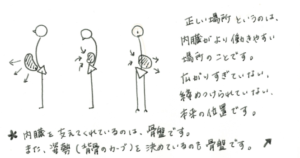 正しい場所というのは、
内臓がより働きやすい
場所のことです。
広がりすぎていない、
締めつけられていない、
本来の位置です。
* 内臓を支えてくれているのは、骨盤です。
また、姿勢(背骨のカーブ)を決めているのも骨盤です。